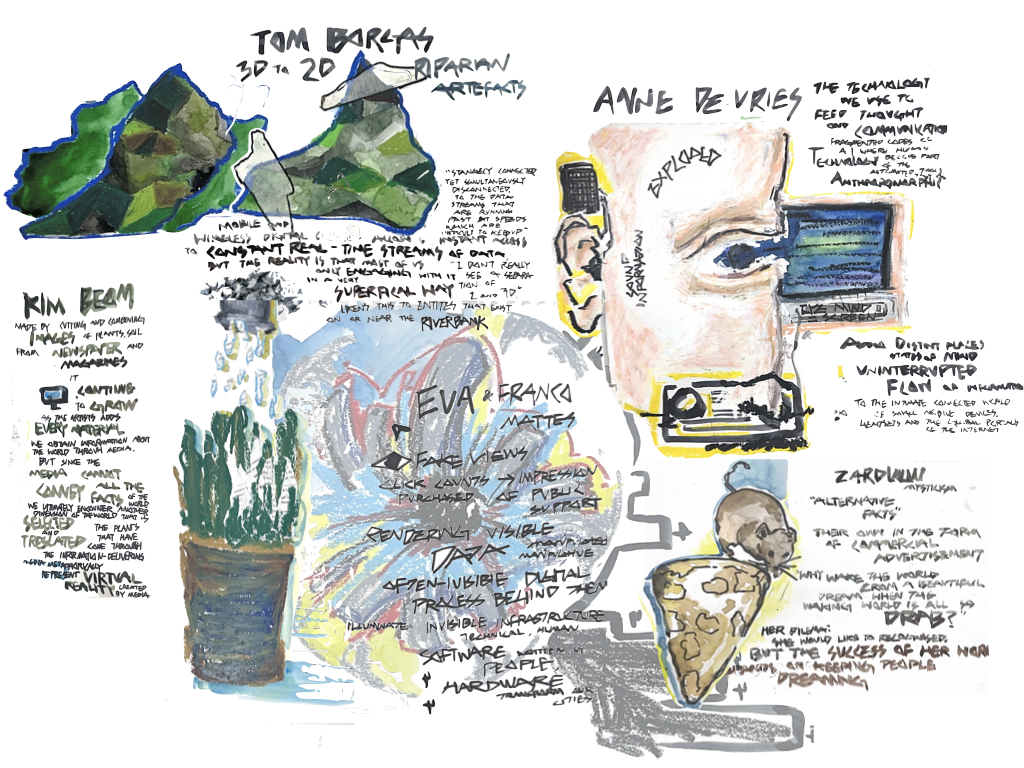 TOM BORGAS
3D TO 2D
RIPARIAN
ARTEFACTS
"STRANGELY CONNECTED
YET SIMULTANEOUSLY
DISCONNECTED,
TO THE DATA
STREAMS THAT
ARE RUNNING
PAST BIT SPEEDS
WHICH ARE
DIFFICULT TO KEEP UP"
MOBILE AND
WIRELESS DIGITAL INSTANT ACCESS
TO CONSTANT REAL-TIME STREAMS OF DATA
BUT THE REALITY IS THAT MOST OF US
ONLY ENGAGING WITH IT
IN A VERY
SUPERFICAL WAY
"I DON'T REALLY
SEE A SEPARA
TION OF
2 AND 3D"
LIKENS THIS TO ENTITIES THAT EXIST
ON OR NEAR THE RIVERBANK
ANNE DE VRIES
THE TECHNOLOGY
WE USE TO
FEED THOUGHT
AND COMMUNICATION
FRAGMENTED CODES
WHERE HUMAN
TECHNOLOGY BECOME PART
OF THE
ANTHROMORPHIC
EXPLODED
SOUND
INFORMATION
EYE MIND
SCREEN
DISTINT PLACES
STATES OF MIND
UNINTERRUPTED
FLOW OF INFORMATION
TO THE INTIMATE CONNECTED WORLD
OF SMALL MOBILE DEVICES,
HEADSETS AND THE GLOBAL PORTALS
OF THE INTERNET
KIM BEOM
MADE BY CUTTING AND COMBINING
IMAGES OF PLANTS, SOIL
FROM NEWSPAPER AND
MAGAZINES
IT
CONTINUE
TO GROW
AS THE ARTISTS ADDS
EVERY MATERIAL
WE OBTAIN INFORMATION ABOUT
THE WORLD THROUGH MEDIA.
BUT SINCE THE
MEDIA CANNOT
CONVEY ALL THE
FACTS OF THE
WORLD
WE ULTIMATELY ENCOUNTER ANOTHER
DIMENSION OF THE WORLD THAT IS
SELECTED
AND
TRESLATED
THE PLANTS
THAT HAVE
COME THROUGH
THE INFORMATION-DELIVERING
MEDIA METAPHORICALLY
REPRESENT VIRTUAL
REALITY CREATED
BY MEDIA
EVA & FRANCO
MATTES
FAKE VIEWS
CLICK COUNTS → IMPRESSION
PURCHASED OF PUBLIC
SUPPORT
RENDERING VISIBLE
DATA
OFTEN-INVISIBLE DIGITAL
PROCESS BEHIND THEM
ILLUMINATE INVISIBLE INFRASTRUCTURE
TECHNICAL, HUMAN
SOFTWARE WRITTEN BY
PEOPLE
HARDWARE
TRANSFORM OUR
CITIES
ZARDULU
MYSTICISM
"ALTERNATIVE
FACTS"
THEIR OWN IN THE FORM
OF COMMERCIAL
ADVERTISEMENT
"WHY WAKE THE WORLD
FROM A BEAUTIFUL
DREAM WHEN THE
WAKING WORLD IS ALL SO
DRAB?"
HER DILEMA:
SHE WOULD LIKE TO RECOGNISED.
BUT THE SUCCESS OF HER WORK
ON KEEPING PEOPLE
DREAMING